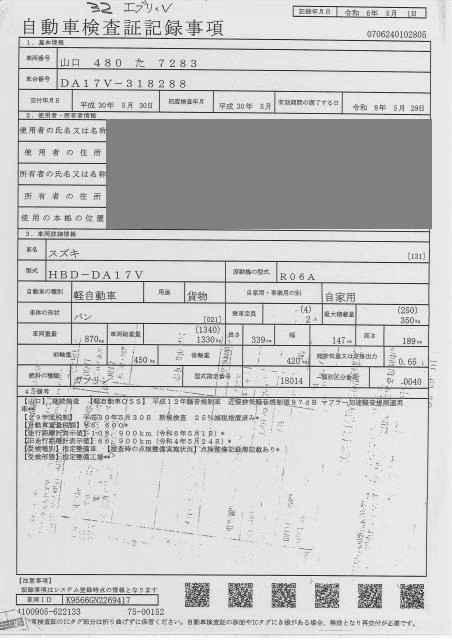 32 エブリィV
記録年月日 令和 6年 5月 1日
自動車検査証記録事項
0706240102805
1. 基本情報
車両番号 山口 480 た 7283
車台番号 DA17V-318288
交付年月日 平成 30年 5月 30日 初度検査年月 平成 30年 5月 有効期間の満了する日 令和 8年 5月 29日
2. 使用者・所有者情報
使用者の氏名又は名称
使用者の住所
所有者の氏名又は名称
所有者の住所
使用の本拠の位置
3. 車両詳細情報
車名 スズキ [131]
型式 HBD-DA17V 原動機の型式 R06A
自動車の種別 軽自動車 用途 貨物 自家用・事業用の別 自家用
車体の形状 バン [021] 乗車定員 (4) 2人 最大積載量 (250) 350kg
車両重量 870kg 車両総重量 (1340) 1330kg 長さ 339cm 幅 147cm 高さ 189cm
前軸重 450kg 後軸重 420kg 総排気量又は定格出力 0.65L
燃料の種類 ガソリン 型式指定番号 18014 類別区分番号 0040
4. 備考
【山口】,継続検査 【軽自動車OSS】 平成12年騒音規制車 近接排気騒音規制値97dB マフラー加速騒音規制適用
車*
【29年度税制】 平成30年5月30日 新規検査 25%減税措置済み*
【自動車重量税額】¥6,600*
【走行距離計表示値】108,900km (令和6年5月1日)*
【旧走行距離計表示値】66,900km (令和4年5月24日)*
【受検種別】指定整備車 【検査時の点検整備実施状況】点検整備記録簿記載あり*
【受検形態】指定整備工場**
【注意事項】
記録事項はシステム登録時点の情報となります
車両ID K9566GN2269417
4100905-622133 75-00152
車検査証のICタグ部分は折り曲げずに保管ください。自動車検査証の券面やICタグに含損がある場合、無効となり再交付が必要です。